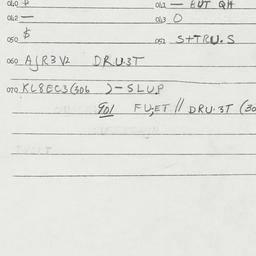 040 $ 041 — EUT QH
042 — 043 O
050 $ 051 S++RU.S
060 AJR3V2 DRU.3T
070 KL8EC3(306 )-SLUP
901 FU;ET // DRU.3T (30